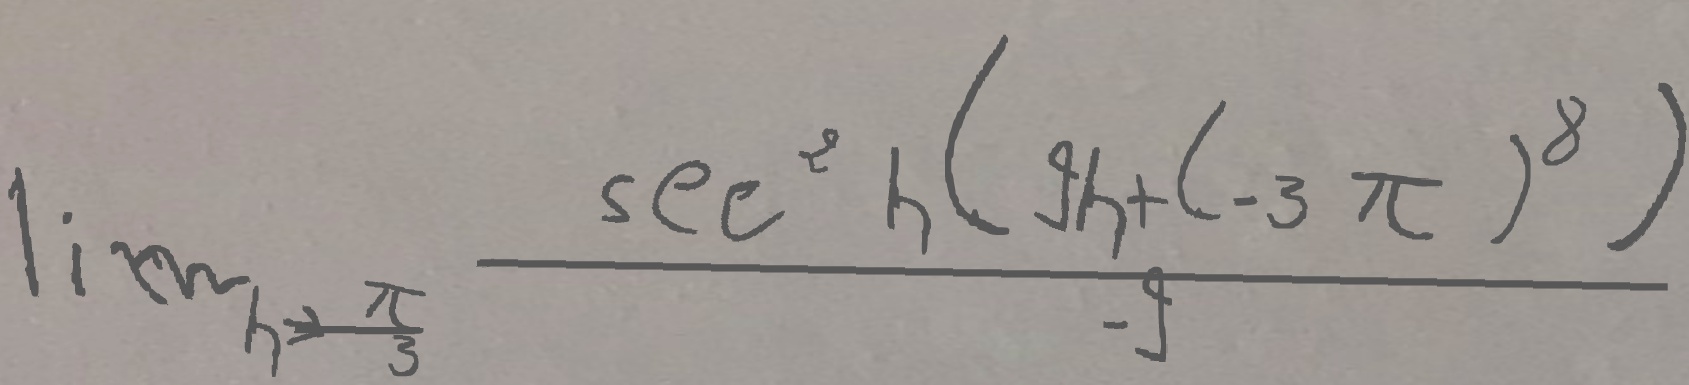 \lim_{h \to \frac{\pi}{3}} \frac{\sec^2 h \left( 9h + (-3\pi)^8 \right)}{-9}